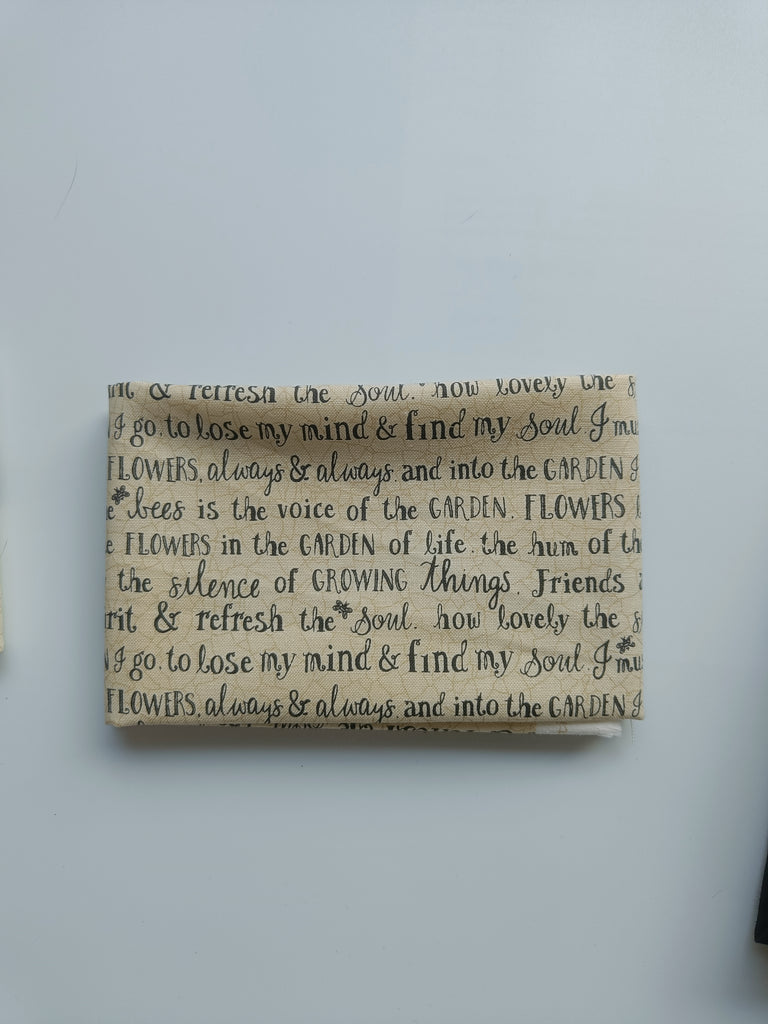 & refresh the Soul. how lovely the
I go. to lose my mind & find my Soul. I
FLOWERS, always & always. and into the GARDEN I
bees is the voice of the GARDEN. FLOWERS
e FLOWERS in the GARDEN of life. the hum of th
the silence of GROWING things. Friends
rit & refresh the Soul. how lovely the s
I go. to lose my mind & find my Soul. I mu
FLOWERS, always & always. and into the GARDEN I